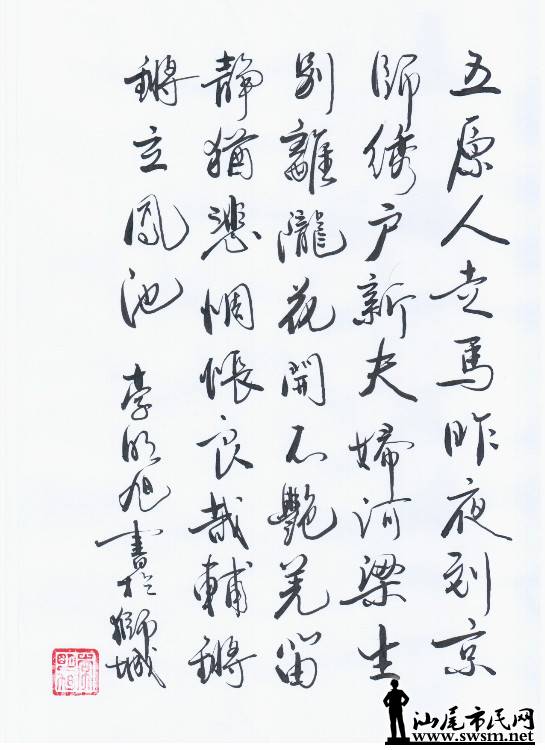 五原人走馬昨夜到京
師綉戶新夫婦河梁生
別離隴花開不艷羌笛
靜猶悲惆悵良哉輔鏘
鏘立鳳池 李明旭書於獅城
汕尾市民网
www.swsm.net